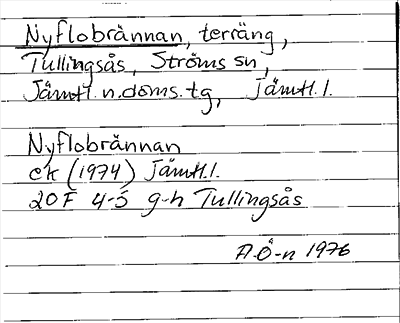 Nyflobrännan, terräng,
Tullingsås, Ströms sn,
Jämtl. n. doms. tg, Jämtl. l.
Nyflobrännan
ek (1974) Jämtl.l.
20F 4-5 g-h Tullingsås
A.Ö-n 1976